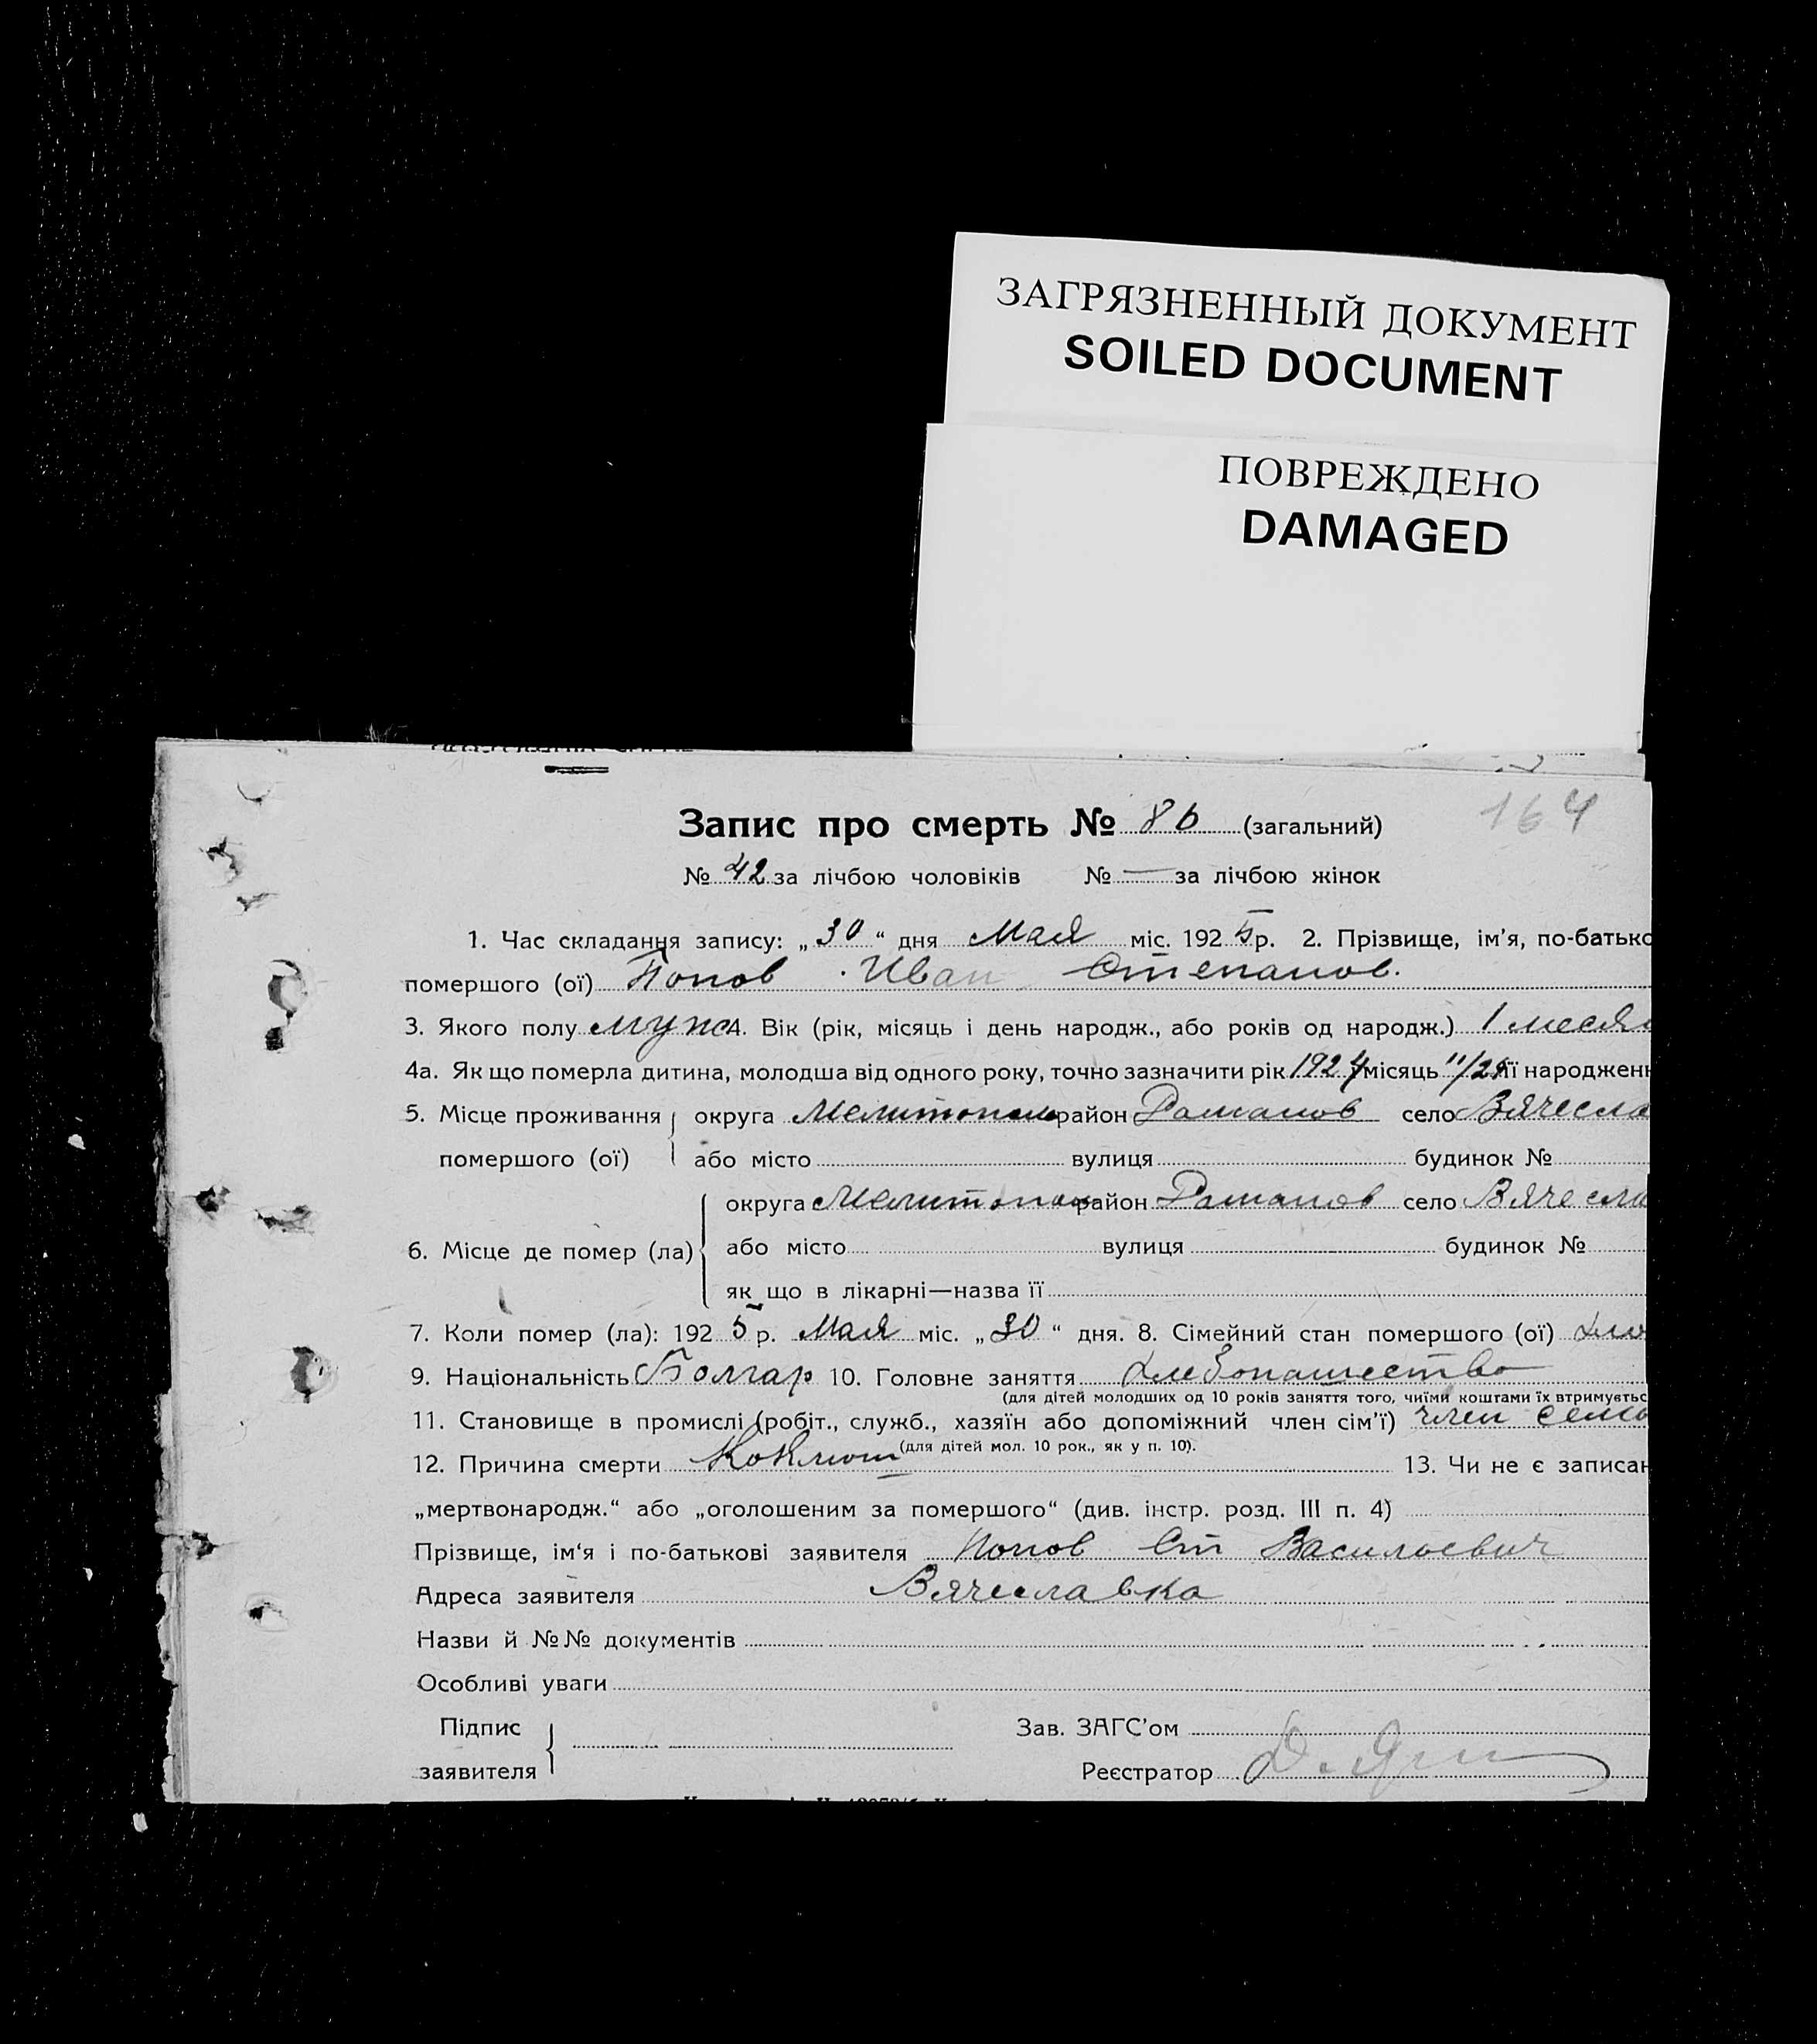 ЗАГРЯЗНЕННЫЙ ДОКУМЕНТ
SOILED DOCUMENT
ПОВРЕЖДЕНО
DAMAGED
164
Запис про смерть № 86 (загальний)
№ 42 за лічбою чоловіків № — за лічбою жінок
1. Час складання запису: „30“ дня Мая міс. 1925 р. 2. Прізвище, ім’я, по-батько
помершого (ої) Попов Иван Степанов.
3. Якого полу муж 4. Вік (рік, місяць і день народж., або років од народж.) 1 меся
4а. Як що померла дитина, молодша від одного року, точно зазначити рік 1924 місяць її народжен
5. Місце проживання округа Мелитопол район Романов село Вячесла
помершого (ої) або місто вулиця будинок №
округа Мелитопол район Романов село Вячесла
6. Місце де помер (ла) або місто вулиця будинок №
як що в лікарні—назва її
7. Коли помер (ла): 1925 р. Мая міс. „30“ дня. 8. Сімейний стан помершого (ої)
9. Національність Болгар 10. Головне заняття хлебопашество
(для дітей молодших од 10 років заняття того, чиїми коштами їх втримуєтьс
11. Становище в промислі (робіт., служб., хазяїн або допоміжний член сім’ї) член семь
(для дітей мол. 10 рок., як у п. 10).
12. Причина смерти Коклюш 13. Чи не є записан
„мертвонародж.“ або „оголошеним за помершого“ (див. інстр. розд. III п. 4)
Прізвище, ім‘я і по-батькові заявителя Попов Ст Васильевич
Адреса заявителя Вячеславка
Назви й №№ документів
Особливі уваги
Підпис Зав. ЗАГС’ом
заявителя Реєстратор